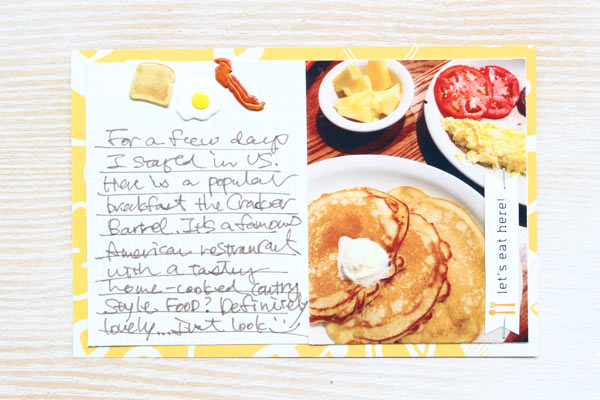 For a few days
I stayed in US.
Here is a popular
breakfast the Cracker
Barrel. It's a famous
American restraurant
with a tastey
home-cooked contry
style FOOD? Definitely
lovely... Just look :)
let's eat here!